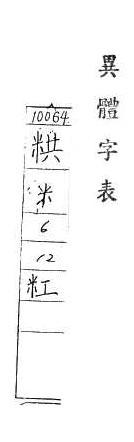 異體字表
10064
粠
米
6
12
粓